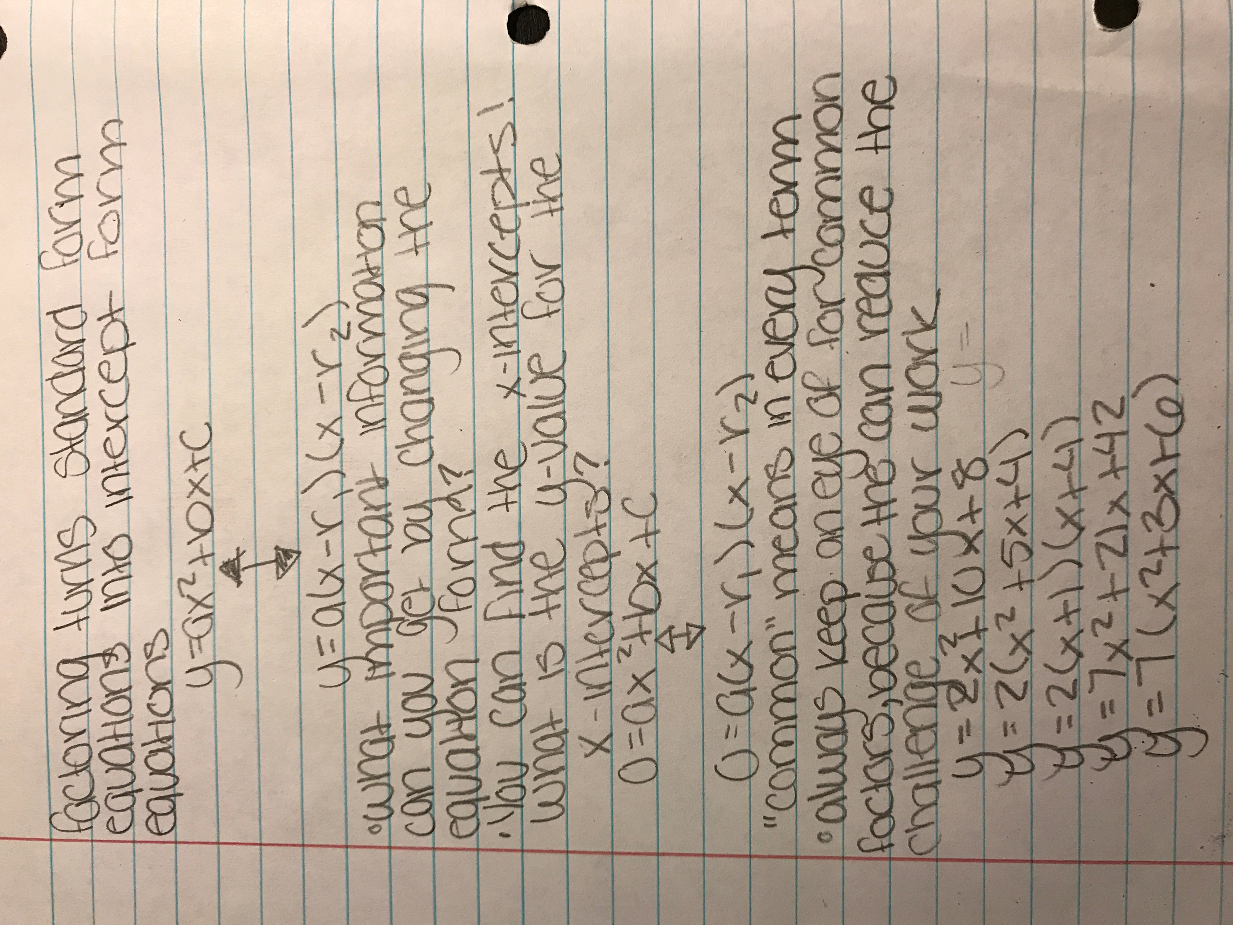 factoring turns standard form
equations into intercept form
equations
y=ax²+bx+c
y=a(x-r₁)(x-r₂)
•what important information
can you get by changing the
equation form?
•You can find the x-intercepts!
What is the y-value for the
x-intercepts?
0=ax²+bx+c
0=a(x-r₁)(x-r₂)
"common" means in every term
•always keep an eye of for common
factors, because they can reduce the
challenge of your work
y=2x²+10x+8 y=
y=2(x²+5x+4)
y=2(x+1)(x+4)
y=7x²+21x+42
y=7(x²+3x+6)